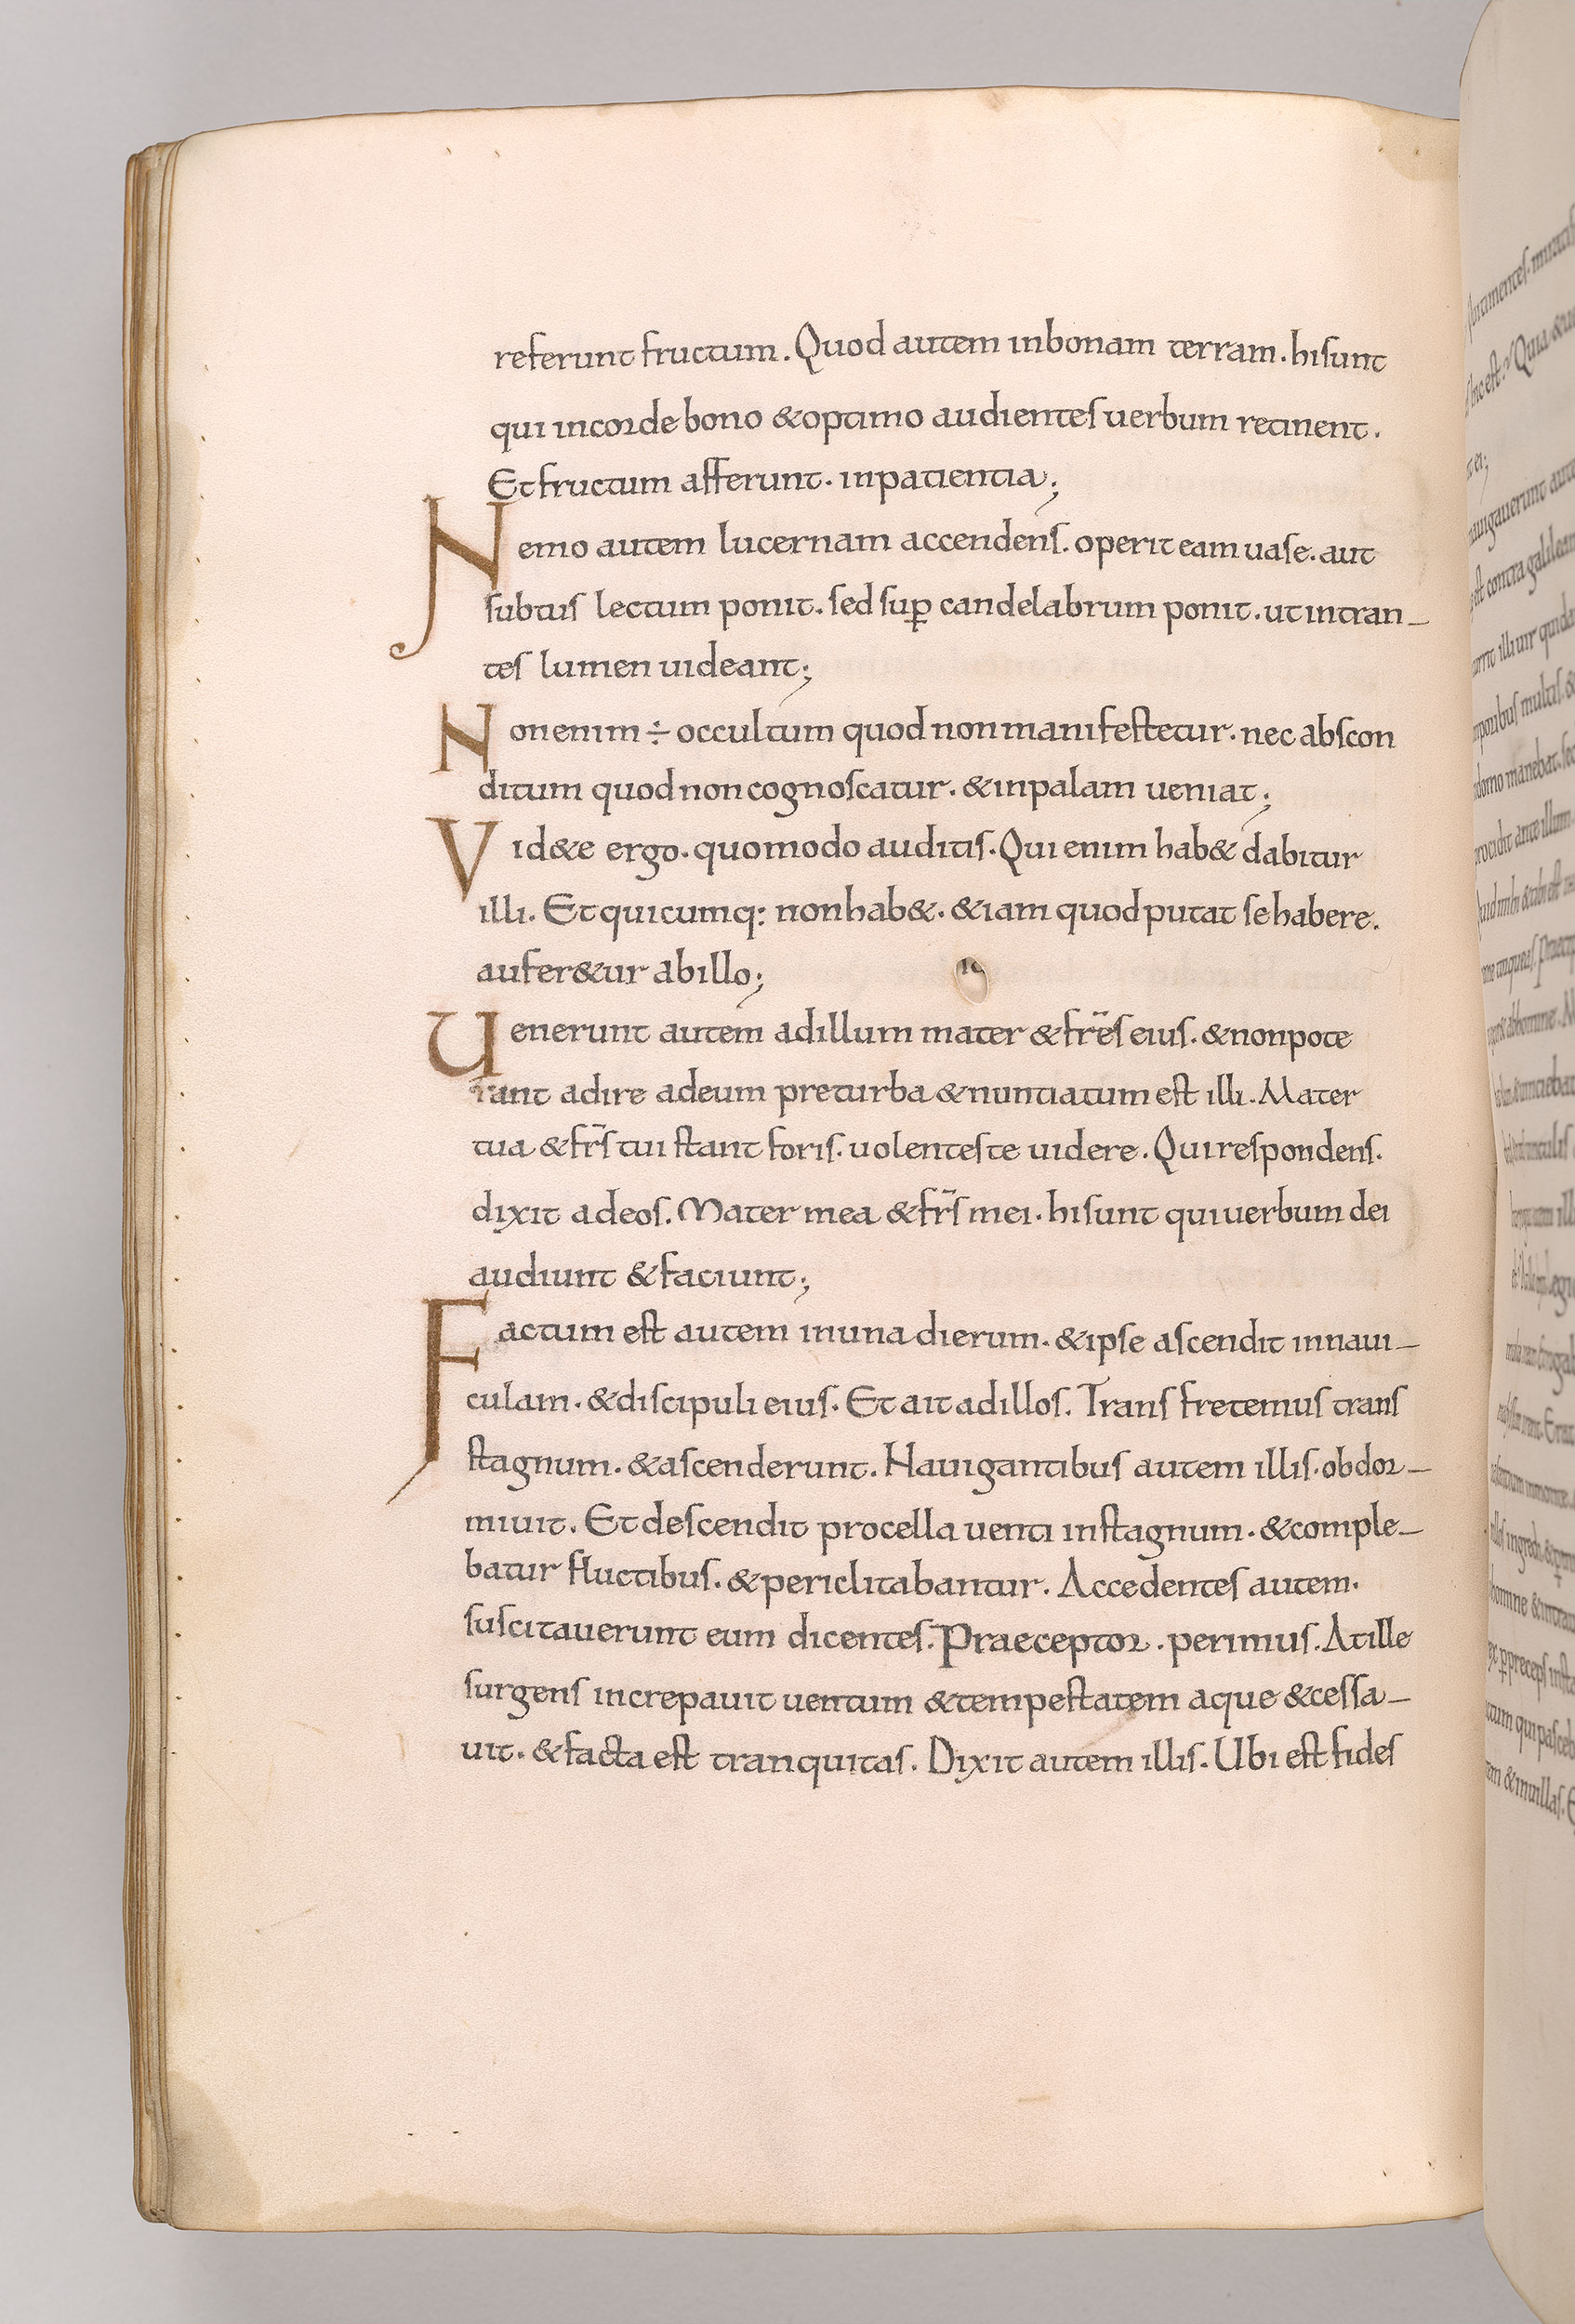 referunt fructum. Quod autem inbonam terram. hisunt
qui incorde bono &optimo audientes uerbum retinent.
Et fructum afferunt. inpatientia;
Nemo autem lucernam accendens. operit eam uase. aut
subtus lectum ponit. sed sup̲ candelabrum ponit. ut intran-
tes lumen uideant;
Non enim ÷ occultum quod non manifestetur. nec abscon
ditum quod non cognoscatur. &inpalam ueniat;
Vid&e ergo. quomodo auditis. Qui enim hab& dabitur
illi. Et quicumq: non hab&. &iam quod putat se habere.
aufer&ur abillo;
Uenerunt autem adillum mater &fr̄es eius. &nonpote
rant adire adeum preturba &nuntiatum est illi. Mater
tua &fr̄s tui stant foris. uolentes te uidere. Qui respondens.
dixit adeos. Mater mea &fr̄s mei. hisunt qui uerbum dei
audiunt &faciunt;
Factum est autem inuna dierum. &ipse ascendit innaui-
culam. &discipuli eius. Et ait adillos. Trans fretemus trans
stagnum. &ascenderunt. Nauigantibus autem illis. obdor-
miuit. Et descendit procella uenti instagnum. &comple-
batur fluctibus. &periclitabantur. Accedentes autem.
suscitauerunt eum dicentes. Praeceptor. perimus. At ille
surgens increpauit uentum &tempestatem aque &cessa-
uit. &facta est tranquitas. Dixit autem illis. Ubi est fides